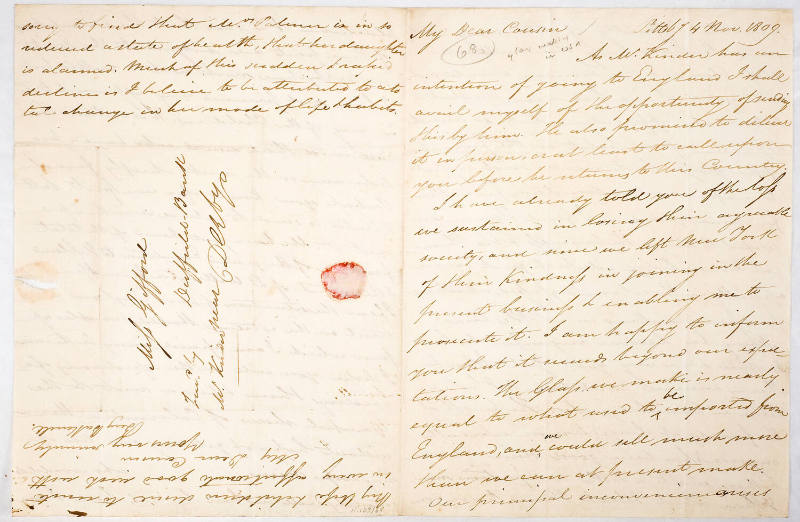 My Dear Cousin / Pittbg 4 Nov. 1809.
68
in USA
As Mr. Kinder has an
intention of going to England I shall
avail myself of the opportunity of sending
this by him. He also promises to deliver
it in person or at least to call upon
you before he returns to this Country
I have already told you of the loss
we sustained in losing their agreeable
society, and since we left New York
of their Kindness in joining in the
present business & enabling me to
prosecute it. I am happy to inform
you that it succeeds beyond our expec
tations. The Glass we make is nearly
equal to what used to be imported from
England, and we could sell much more
than we can at present make.
Our principal inconvenience arises
sorry to find that Mrs Palmer is in so
reduced a state of health, that her daughter
is alarmed. Much of this sudden & rapid
decline is I believe to be attributed to a to
tal change in her mode of life & habits.
Miss Gifford
Duffield Bank
near Derby
My Wife & children desire to unite
in very affectionate good wish with
My Dear Cousin
Yours very sincerely
Benj Bakewell